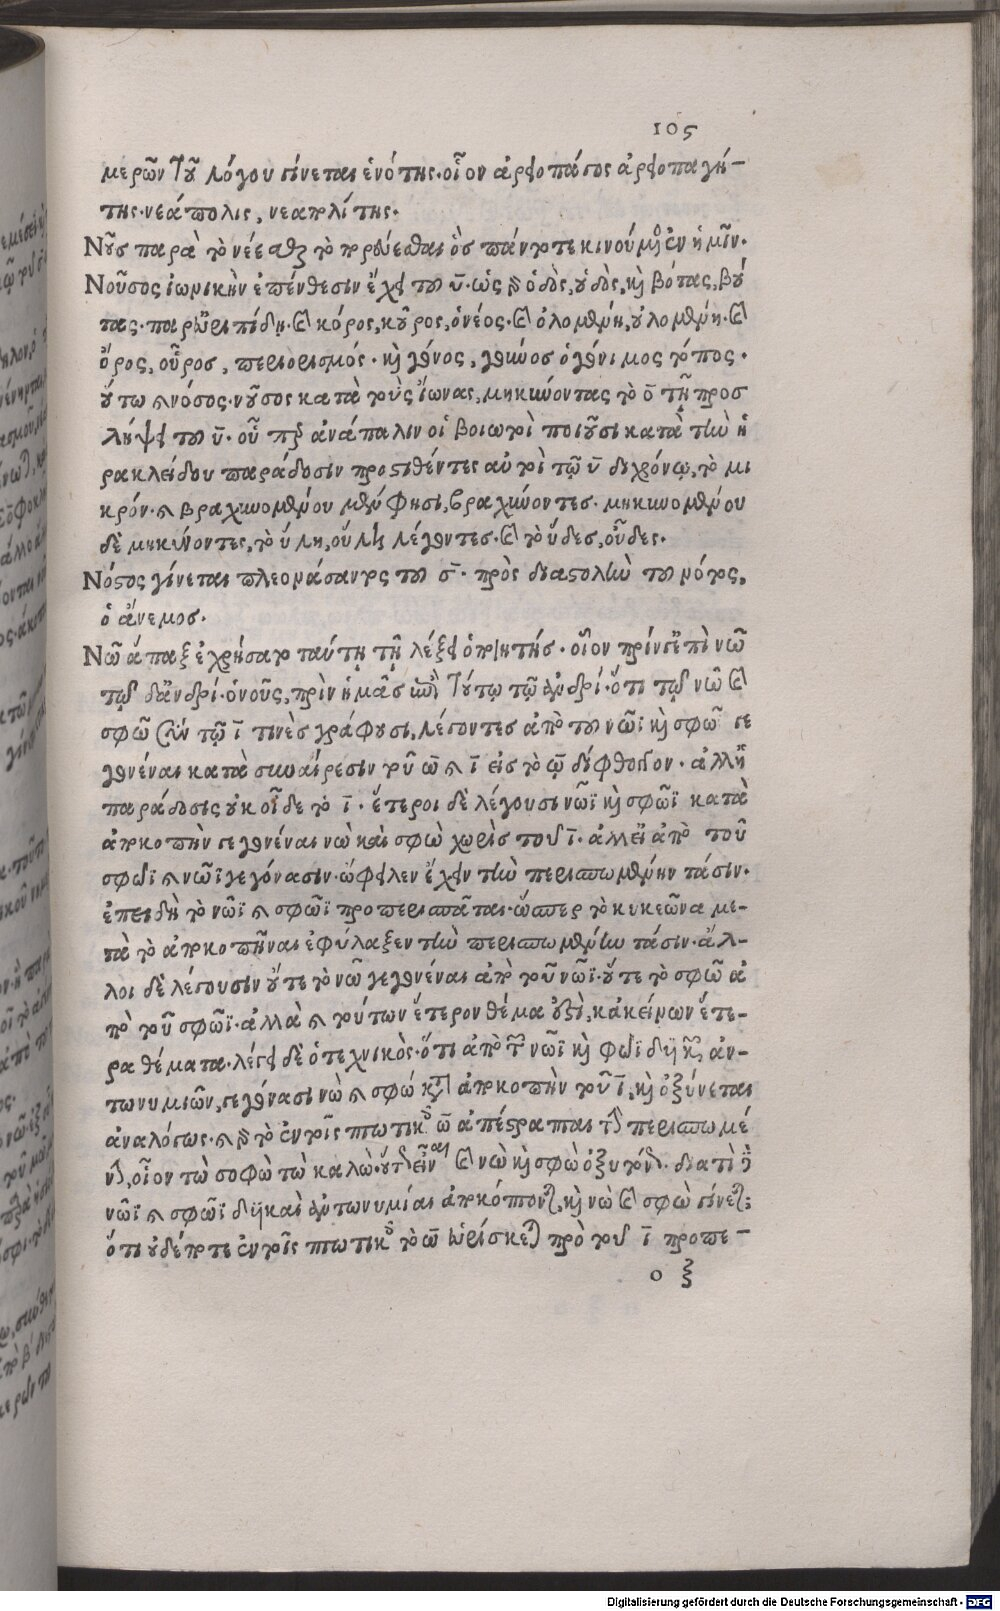 105
μερῶν τοῦ λόγου γίνεται ἑνότης. οἷον ἀρειοπάγος ἀρειοπαγή-
της. νεάπολις, νεαπολίτης.
Νοῦς παρὰ τὸ νέεσθαι τὸ πορεύεσθαι ὃς πάντοτε κινούμενος ἐν ἡμῖν.
Νοῦσος ἰωνικὴν ἐπένθεσιν ἔχει τοῦ ῡ. ὡς τὸ ὁδὸς, οὐδὸς, καὶ βότας, βού
τας. παρ' εὐριπίδη. καὶ κόρος, κοῦρος, ὀνέος. καὶ ὀλομένη, οὐλομένη. καὶ
ὅρος, οὖρος, περιορισμός. καὶ γόνος, γοῦνος ὁ γόνιμος τόπος.
οὕτω καὶ νόσος. νοῦσος κατὰ τοὺς ἴωνας, μηκύνοντας τὸ ο̄ τῇ προσ
λήψει τοῦ ῡ. οὗ ἀνάπαλιν οἱ βοιωτοὶ ποιοῦσι κατὰ τὴν ἡ
ρακλείδου παράδοσιν προστιθέντες αὐτοὶ τῷ ῡ διχρόνῳ, τὸ μι
κρόν. καὶ βραχυνομένου μένουσι, βραχύνοντες. μηκυνομένου
δὲ μηκύνοντες, τὸ ὕλη, οὔλη λέγοντες. καὶ τὸ ὕδες, οὖδες.
Νόστος γίνεται πλεονάσαντος τοῦ σ̄. πρὸς διαστολὴν τοῦ νότος,
ὁ ἄνεμος.
Νῶ ἅπαξ ἐχρήσατο ταύτῃ τῇ λέξει ὁ ποιητής. οἷον πρίν γ' ἐπὶ νῶ
τῷδ' ἀνδρί. ὁ νοῦς, πρὶν ἡμᾶς ἐπὶ τούτῳ τῷ ἀνδρί. ὅτι τῷ νῶ καὶ
σφῶ σὺν τῷ ῑ τινὲς γράφουσι, λέγοντες ἀπὸ τοῦ νῶϊ καὶ σφῶϊ γε
γονέναι κατὰ συναίρεσιν τοῦ ω̄ καὶ ῑ εἰς τὸ ῳ δίφθογγον. ἀλλ' ἡ
παράδοσις οὐκ οἶδε τὸ ῑ. ἕτεροι δὲ λέγουσι νῶϊ καὶ σφῶϊ κατὰ
ἀποκοπὴν γεγονέναι νὼ καὶ σφὼ χωρὶς τοῦ ῑ. ἀλλ' εἰ ἀπὸ τοῦ
σφῶϊ καὶ νῶϊ γεγόνασιν. ὤφειλεν ἔχειν τὴν περισπωμένην τάσιν.
ἐπειδὴ τὸ νῶϊ καὶ σφῶϊ προπερισπᾶται. ὥσπερ τὸ κυκεῶνα με-
τὰ τὸ ἀποκοπῆναι ἐφύλαξεν τὴν περισπωμένην τάσιν. ἄλ-
λοι δὲ λέγουσιν οὔτε τὸ νῶ γεγονέναι ἀπὸ τοῦ νῶϊ. οὔτε τὸ σφῶ ἀ
πὸ τοῦ σφῶϊ. ἀλλὰ καὶ τούτων ἕτερον θέμα ἐστὶ, κἀκείνων ἕτε-
ρα θέματα. λέγει δὲ ὁ τεχνικὸς. ὅτι ἀπὸ τῶν νῶϊ καὶ σφῶϊ δυϊκῶν ἀν-
τωνυμιῶν, γεγόνασι νὼ καὶ σφώ κατὰ ἀποκοπὴν τοῦ ῑ, καὶ ὀξύνεται
ἀναλόγως. καὶ τὸ ἐν τοῖς πτωτικοῖς ω̄ ἀπέστραπται τὸ περισπωμέ
νον, οἷον τὼ σοφὼ τὼ καλὼ. οὕτω καὶ νὼ καὶ σφὼ ὀξυτόνως. διατὶ
νῶϊ καὶ σφῶϊ δυϊκαὶ ἀντωνυμίαι ἀποκόπτονται, καὶ νὼ καὶ σφὼ γίνεται;
ὅτι οὐδέποτε ἐν τοῖς πτωτικοῖς τὸ ω̄ εὑρίσκεται πρὸ τοῦ ῑ προπε-
ο ξ
Digitalisierung gefördert durch die Deutsche Forschungsgemeinschaft - DFG